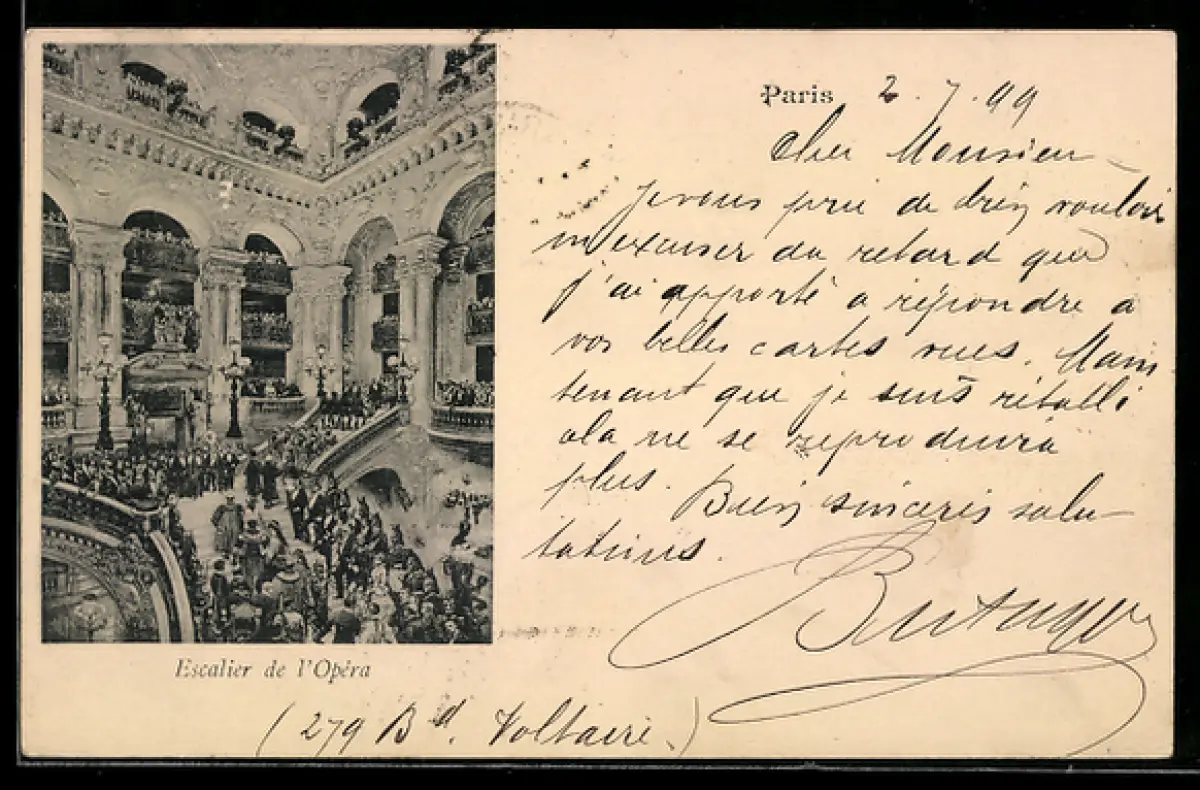 Paris 2.7.99
Cher Monsieur
Je vous prie de bien vouloir
m'excuser du retard que
j'ai apporté a répondre à
vos belles cartes vues. Main-
tenant que je suis rétabli
cela ne se reproduira
plus. Bien sincères salu-
tations.
Escalier de l'Opéra
(279 Bd. Voltaire.)